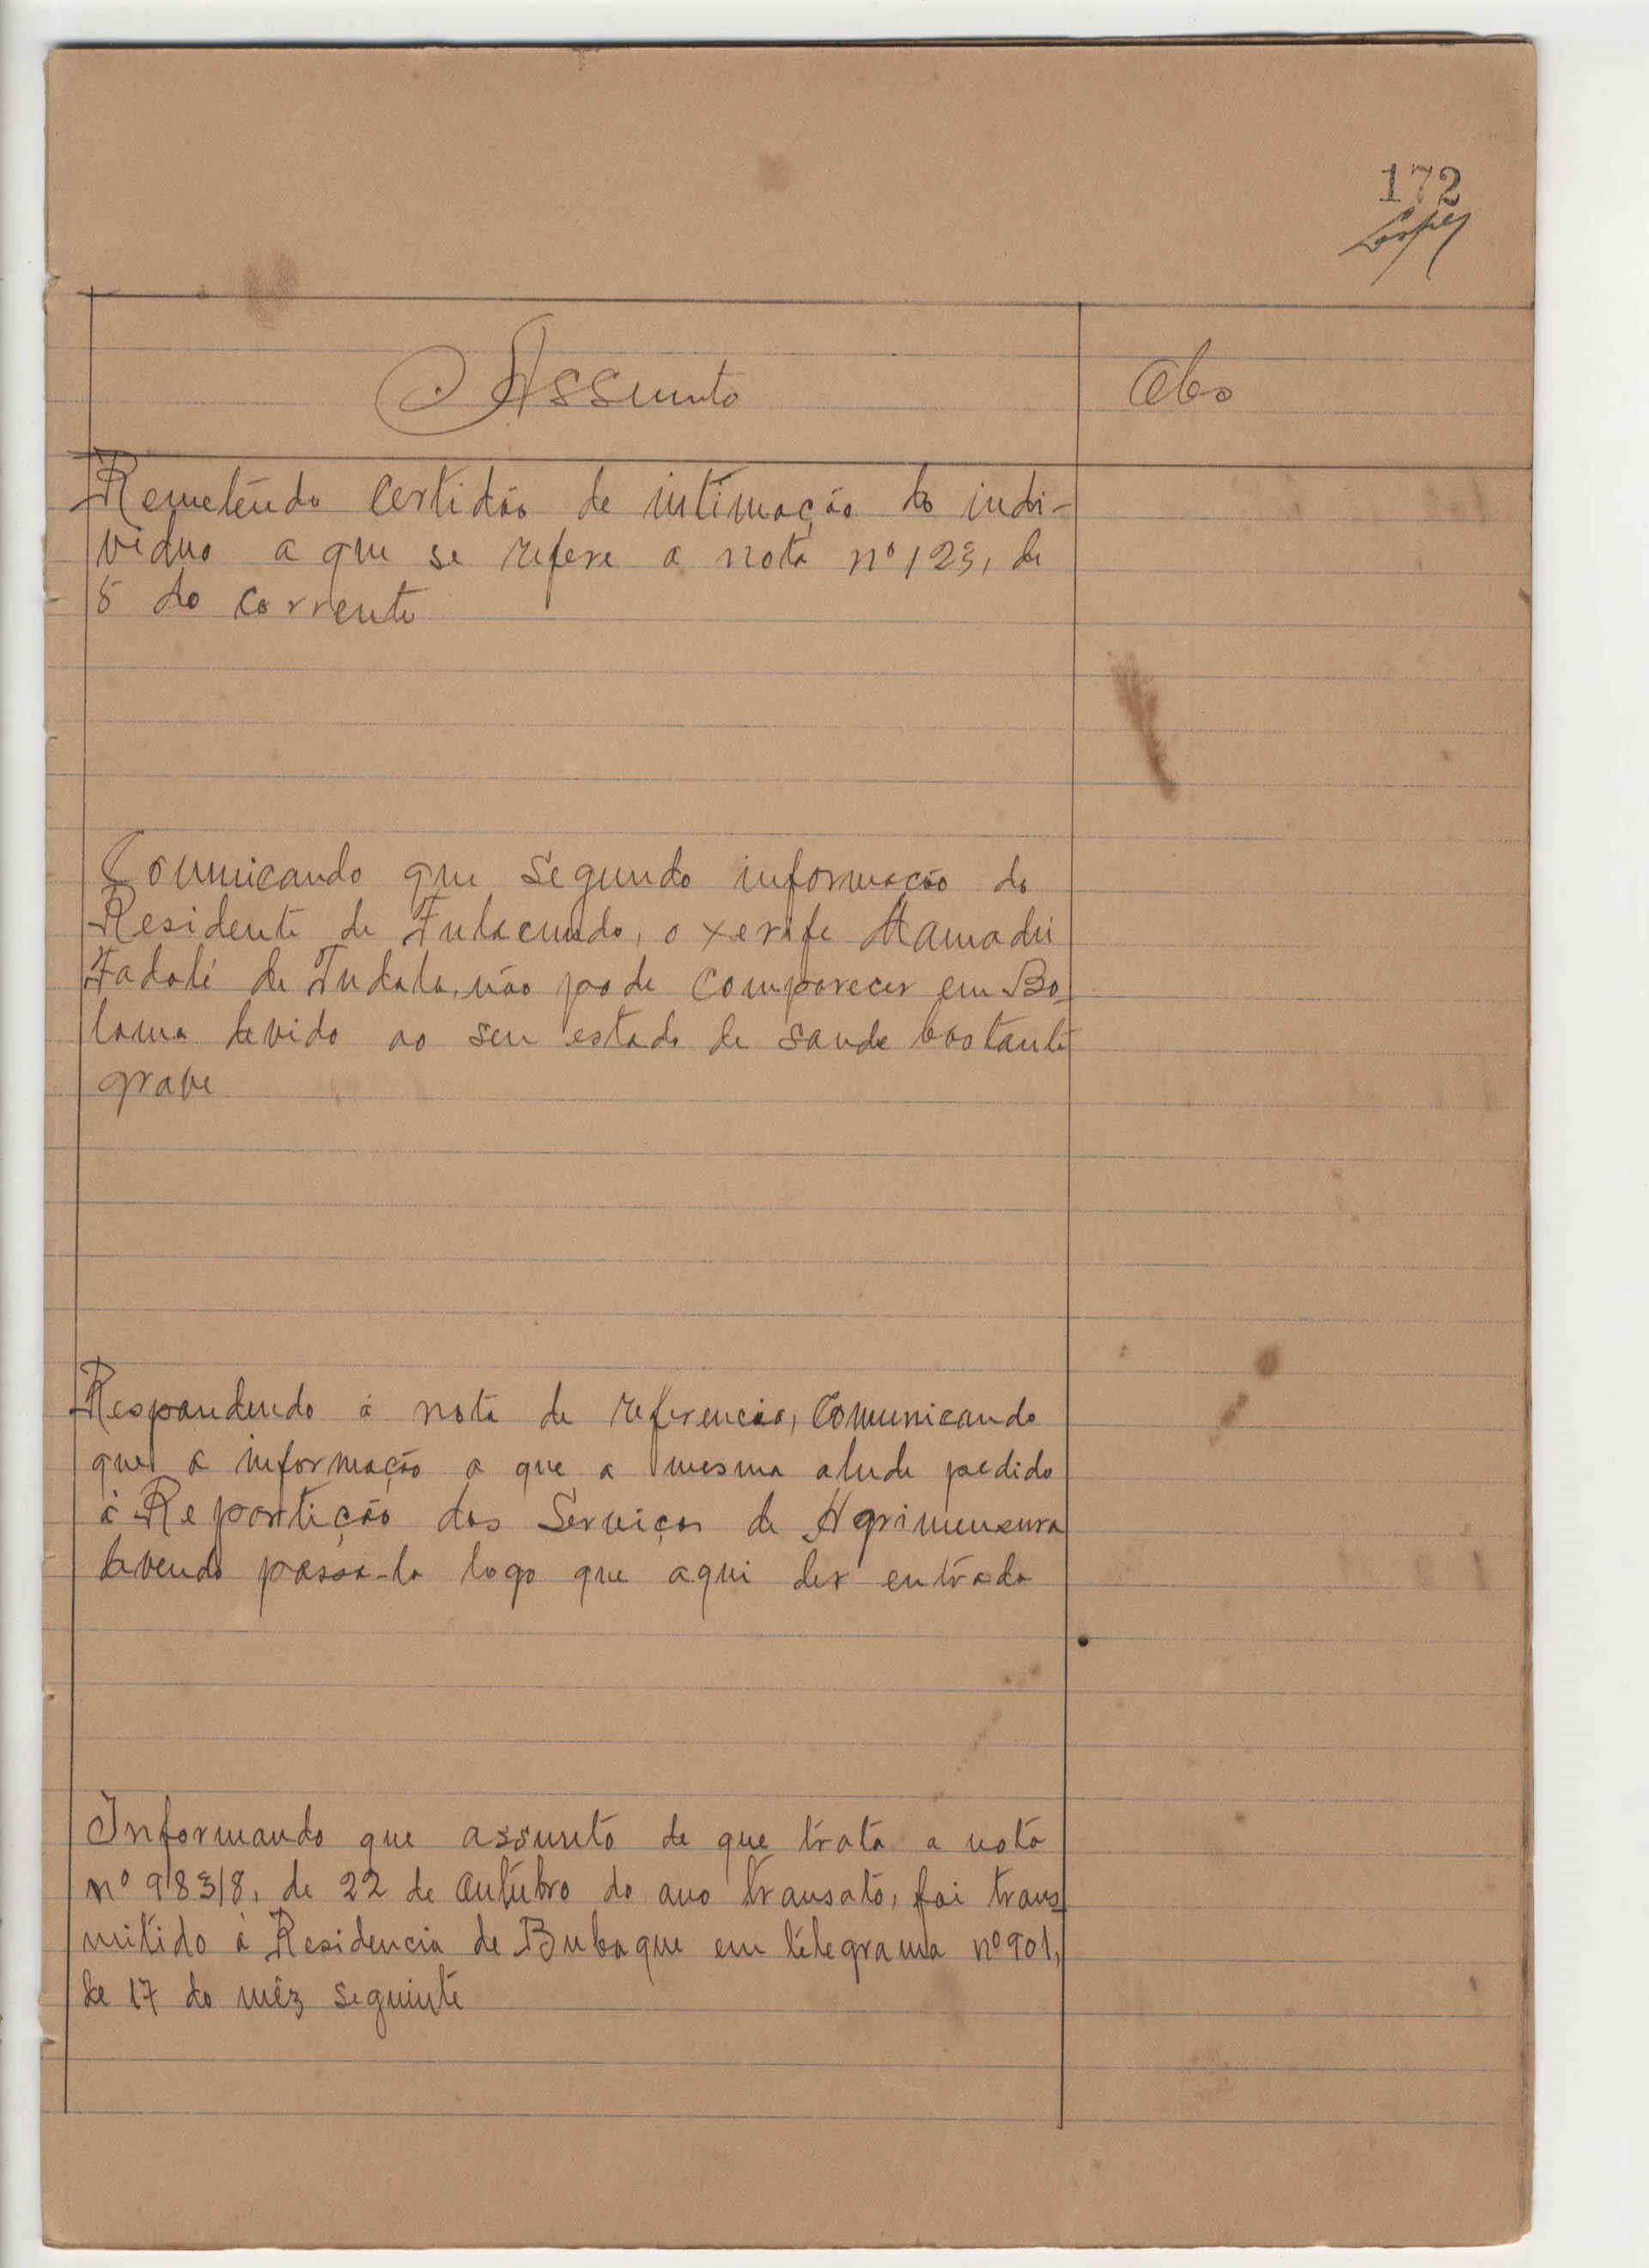 172
Lopes
Assunto
Obs
Remetendo certidão de intimação do indi-
viduo a que se refere a nota nº 123, de
5 do corrente
Comunicando que segundo informação do
Residente de Fulacunda, o xerife Mamadú
Fadalé de Indala, não pode comparecer em Bo-
lama devido ao seu estado de saude bastante
grave
Respondendo á nota de referencia, comunicando
que a informação a que a mesma alude pedido
á Repartição dos Serviços de Agrimensura
devendo passa-la logo que aqui der entrada
Informando que assunto de que trata a nota
nº 983/8, de 22 de outubro do ano transato, foi trans-
mitido á Residencia de Bubaque em telegrama nº 901,
de 17 do mêz seguinte